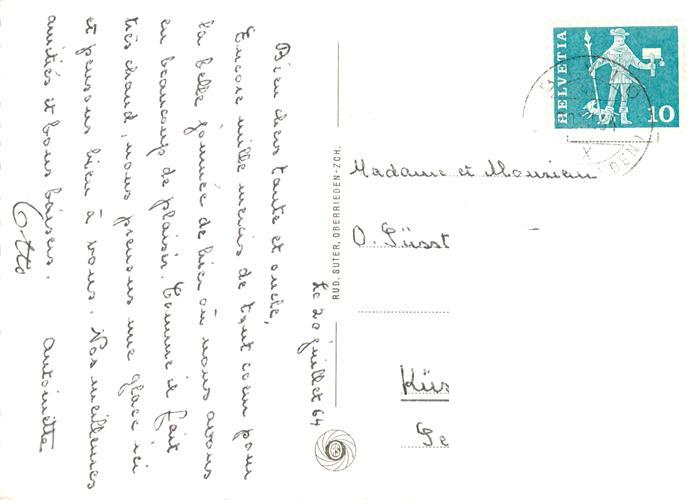 Le 20 juillet 64
Bien chers tante et oncle,
Encore mille mercis de tout coeur pour
la belle journée de hier où nous avons
eu beaucoup de plaisir. Comme il fait
très chaud, nous prenons une glace ici
et pensons bien à vous. Nos meilleures
amitiés et bons baisers.
Antoinette
Otto
RUD. SUTER, OBERRIEDEN-ZCH.
HELVETIA
10
Madame et Monsieur
O. Süsst
Küs